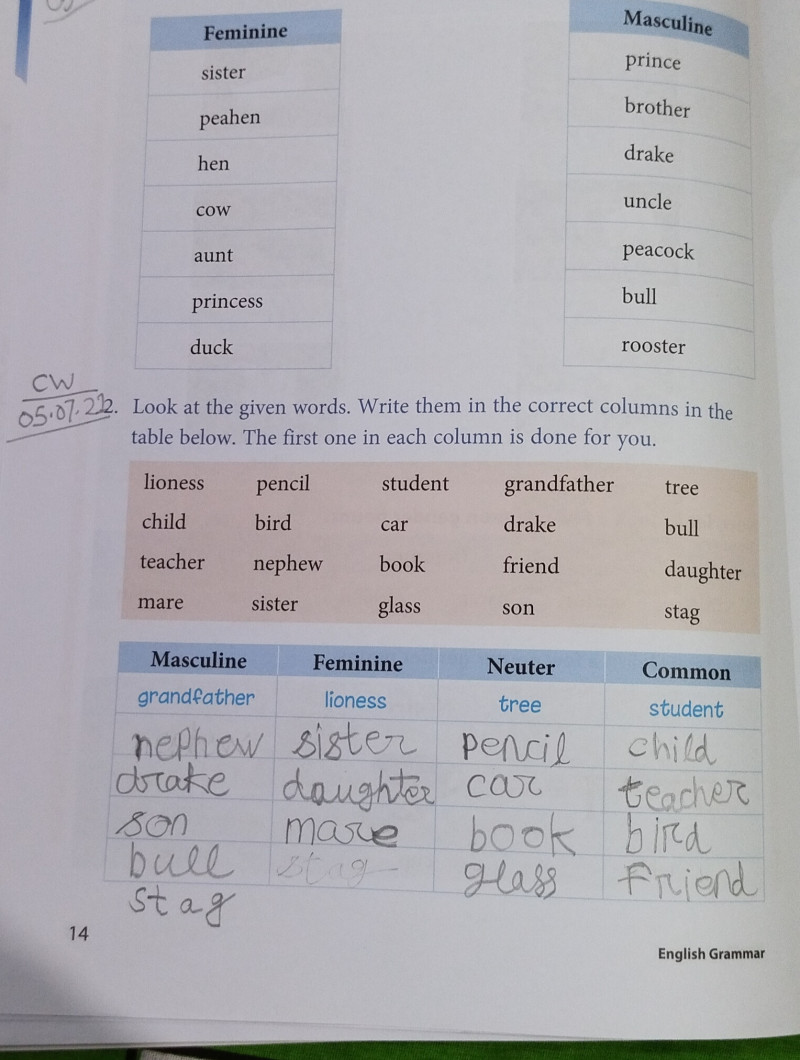 Feminine Masculine
sister prince
peahen brother
hen drake
cow uncle
aunt peacock
princess bull
duck rooster
CW
05.07.22
2. Look at the given words. Write them in the correct columns in the
table below. The first one in each column is done for you.
lioness pencil student grandfather tree
child bird car drake bull
teacher nephew book friend daughter
mare sister glass son stag
Masculine Feminine Neuter Common
grandfather lioness tree student
nephew sister pencil child
drake daughter car teacher
son mare book bird
bull stag glass Friend
stag
14
English Grammar